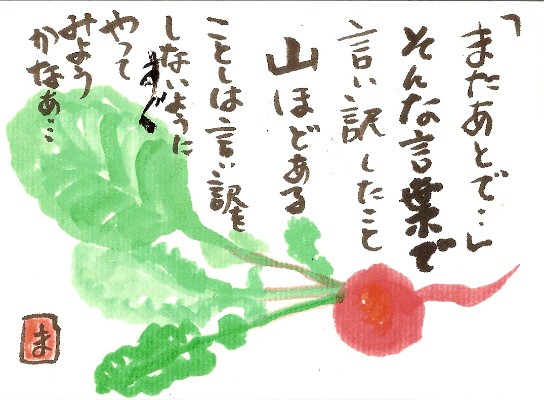 「またあとで…」
そんな言葉で
言い訳したこと
山ほどある
ことしは言い訳を
しないように
すぐ
やって
みよう
かなあ…
ま